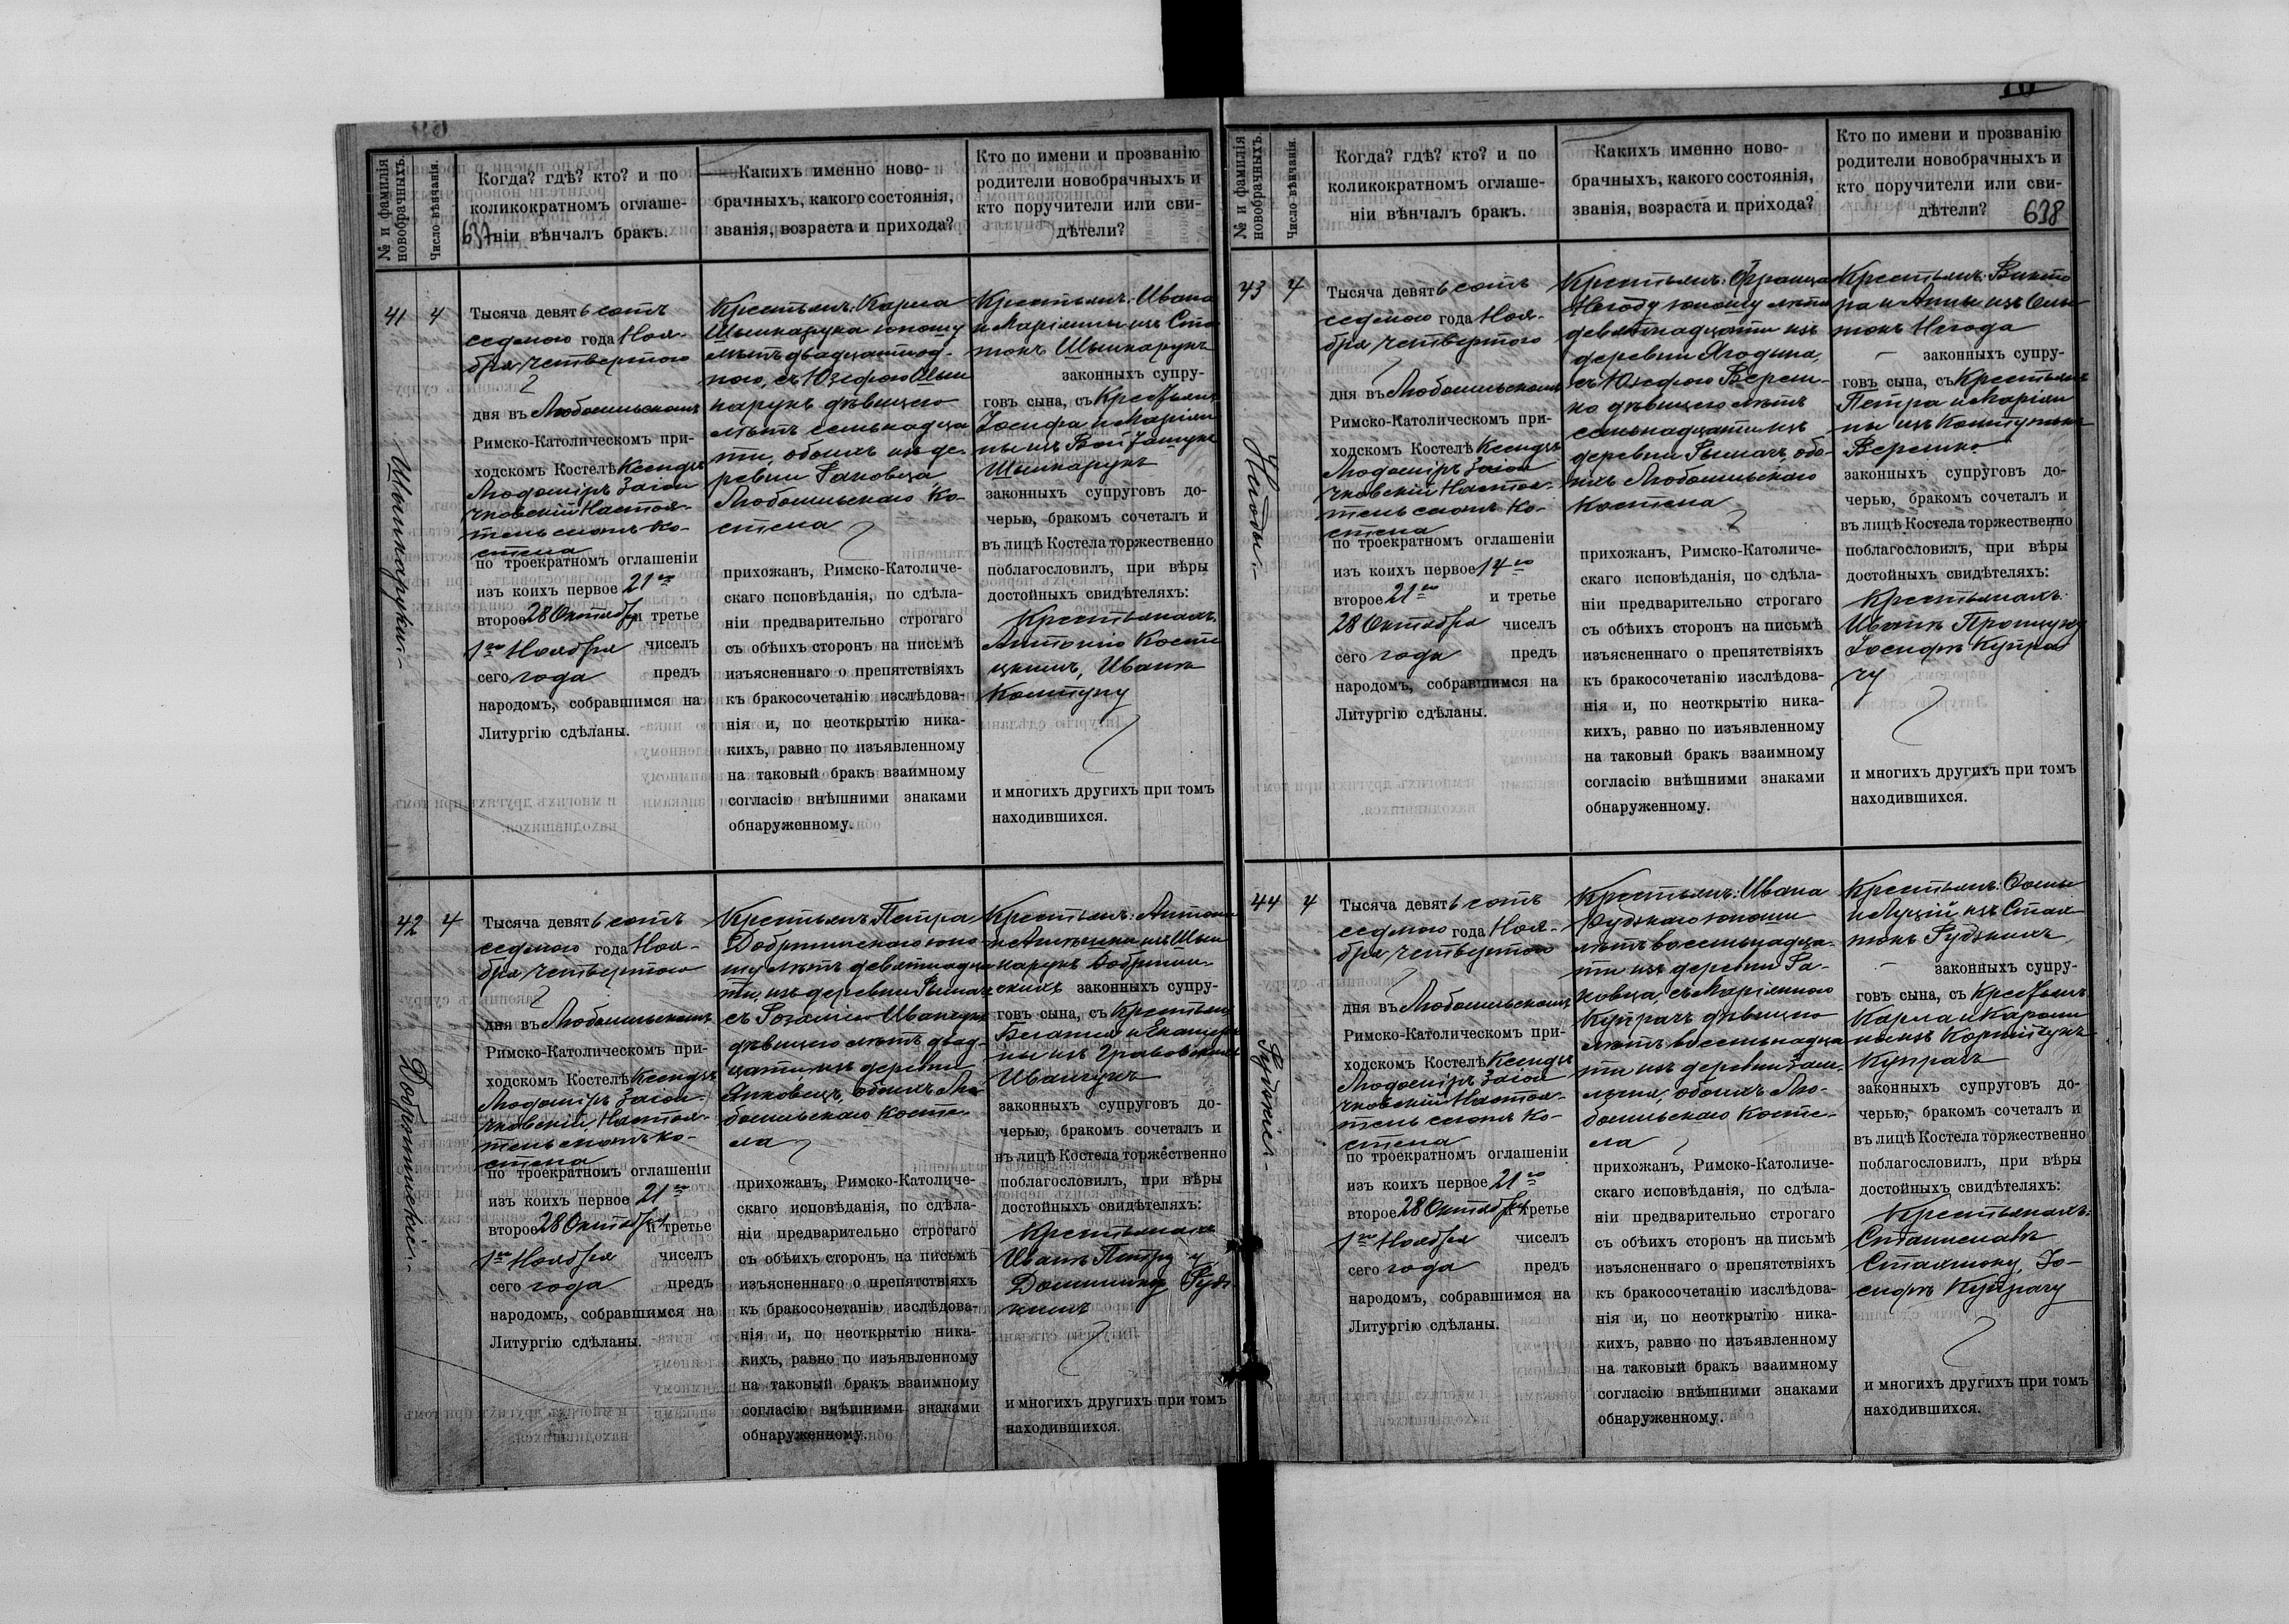 № и фамилія новобрачныхъ.
Число вѣнчанія.
Когда? гдѣ? кто? и по
коликократномъ оглаше-
ніи вѣнчалъ бракъ.
637
Какихъ именно ново-
брачныхъ, какого состоянія,
званія, возраста и прихода?
Кто по имени и прозванію
родители новобрачныхъ и
кто поручители или сви-
дѣтели?
41
4
Шинкаруки
Тысяча девятьсотъ
седьмого года Ноя-
бря четвертого
дня въ Любомльскомъ
Римско-Католическомъ при-
ходскомъ Костелѣ Ксендзъ
Настоя-
тель сего Ко-
стела
по троекратномъ оглашеніи
изъ коихъ первое 21го
второе 28 Октября и третье
1го Ноября чиселъ
сего года предъ
народомъ, собравшимся на
Литургію сдѣланы.
Крестьянъ: Карла
Шинкарука юношу
лѣтъ двадцатиод-
ного, съ Юзефою Шин
карукъ дѣвицею
лѣтъ семьнадца
ти, обоихъ изъ де-
ревни Раковца
Любомльскаго Ко-
стела
прихожанъ, Римско-Католиче-
скаго исповѣданія, по сдѣла-
ніи предварительно строгаго
съ обѣихъ сторонъ на письмѣ
изъясненнаго о препятствіяхъ
къ бракосочетанію изслѣдова-
нія и, по неоткрытію ника-
кихъ, равно по изъявленному
на таковый бракъ взаимному
согласію внѣшними знаками
обнаруженному.
Крестьянъ: Ивана
и Маріанны изъ
Шинкарукъ
законныхъ супру-
говъ сына, съ Крестьянъ
Іосифа и Маріан
ны изъ
Шинкарукъ
законныхъ супруговъ до-
черью, бракомъ сочеталъ и
въ лицѣ Костела торжественно
поблагословилъ, при вѣры
достойныхъ свидѣтеляхъ:
Крестьянахъ
Антонію
Иванѣ
Ковтуну
и многихъ другихъ при томъ
находившихся.
42
4
Добрянскіе
Тысяча девятьсотъ
седьмого года Ноя-
бря четвертого
дня въ Любомльскомъ
Римско-Католическомъ при-
ходскомъ Костелѣ Ксендзъ
Настоя-
тель сего Ко-
стела
по троекратномъ оглашеніи
изъ коихъ первое 21го
второе 28 Октября и третье
1го Ноября чиселъ
сего года предъ
народомъ, собравшимся на
Литургію сдѣланы.
Крестьянъ Петра
юно
шу лѣтъ девятнадца
ти, изъ деревни Рымачъ
съ Розаліею Иванчукъ
дѣвицею лѣтъ двад-
цати изъ деревни
обоихъ Лю
бомльскаго Косте
ла
прихожанъ, Римско-Католиче-
скаго исповѣданія, по сдѣла-
ніи предварительно строгаго
съ обѣихъ сторонъ на письмѣ
изъясненнаго о препятствіяхъ
къ бракосочетанію изслѣдова-
нія и, по неоткрытію ника-
кихъ, равно по изъявленному
на таковый бракъ взаимному
согласію внѣшними знаками
обнаруженному.
Крестьянъ: Антона
изъ Шин
карукъ
законныхъ супру-
говъ сына, съ Крестьянъ
Иванчукъ
законныхъ супруговъ до-
черью, бракомъ сочеталъ и
въ лицѣ Костела торжественно
поблагословилъ, при вѣры
достойныхъ свидѣтеляхъ:
Крестьянахъ
Доминику Рудз
кимъ
и многихъ другихъ при томъ
находившихся.
№ и фамилія новобрачныхъ.
Число вѣнчанія.
Когда? гдѣ? кто? и по
коликократномъ оглаше-
ніи вѣнчалъ бракъ.
Какихъ именно ново-
брачныхъ, какого состоянія,
званія, возраста и прихода?
Кто по имени и прозванію
родители новобрачныхъ и
кто поручители или сви-
дѣтели?
638
43
4
Негоды
Тысяча девятьсотъ
седьмого года Ноя-
бря четвертого
дня въ Любомльскомъ
Римско-Католическомъ при-
ходскомъ Костелѣ Ксендзъ
Настоя-
тель сего Ко-
стела
по троекратномъ оглашеніи
изъ коихъ первое 14го
второе 21го и третье
28 Октября чиселъ
сего года предъ
народомъ, собравшимся на
Литургію сдѣланы.
Крестьянъ: Франца
Негоду юношу лѣтъ
девятнадцати изъ
деревни Ягодина,
съ Юзефою Вереш-
ко дѣвицею лѣтъ
семьнадцати изъ
деревни Рымачъ, обо-
ихъ Любомльскаго
Костела
прихожанъ, Римско-Католиче-
скаго исповѣданія, по сдѣла-
ніи предварительно строгаго
съ обѣихъ сторонъ на письмѣ
изъясненнаго о препятствіяхъ
къ бракосочетанію изслѣдова-
нія и, по неоткрытію ника-
кихъ, равно по изъявленному
на таковый бракъ взаимному
согласію внѣшними знаками
обнаруженному.
Крестьянъ: Викто
ра и Анны изъ
Негода
законныхъ супру-
говъ сына, съ Крестьянъ
Петра и Маріан
ны изъ
Верешко
законныхъ супруговъ до-
черью, бракомъ сочеталъ и
въ лицѣ Костела торжественно
поблагословилъ, при вѣры
достойныхъ свидѣтеляхъ:
Крестьянахъ:
Иванѣ
Іосифѣ Купра
чу
и многихъ другихъ при томъ
находившихся.
44
4
Рудзкіе
Тысяча девятьсотъ
седьмого года Ноя-
бря четвертого
дня въ Любомльскомъ
Римско-Католическомъ при-
ходскомъ Костелѣ Ксендзъ
Настоя-
тель сего Ко-
стела
по троекратномъ оглашеніи
изъ коихъ первое 21го
второе 28 Октября и третье
1го Ноября чиселъ
сего года предъ
народомъ, собравшимся на
Литургію сдѣланы.
Крестьянъ: Ивана
Рудзкаго юношу
лѣтъ восемьнадца-
ти изъ деревни Ра-
ковца, съ Маріанною
Купрачъ дѣвицею
лѣтъ восемьнадца
ти изъ деревни
обоихъ Лю-
бомльскаго Косте-
ла
прихожанъ, Римско-Католиче-
скаго исповѣданія, по сдѣла-
ніи предварительно строгаго
съ обѣихъ сторонъ на письмѣ
изъясненнаго о препятствіяхъ
къ бракосочетанію изслѣдова-
нія и, по неоткрытію ника-
кихъ, равно по изъявленному
на таковый бракъ взаимному
согласію внѣшними знаками
обнаруженному.
Крестьянъ: Фомы
и Луціи изъ
Рудзкихъ
законныхъ супру-
говъ сына, съ Крестьянъ
Карла и Кароли
ны изъ Корнійчукъ
Купрачъ
законныхъ супруговъ до-
черью, бракомъ сочеталъ и
въ лицѣ Костела торжественно
поблагословилъ, при вѣры
достойныхъ свидѣтеляхъ:
Крестьянахъ:
Станиславѣ
Іо-
сифѣ Купрачу
и многихъ другихъ при томъ
находившихся.